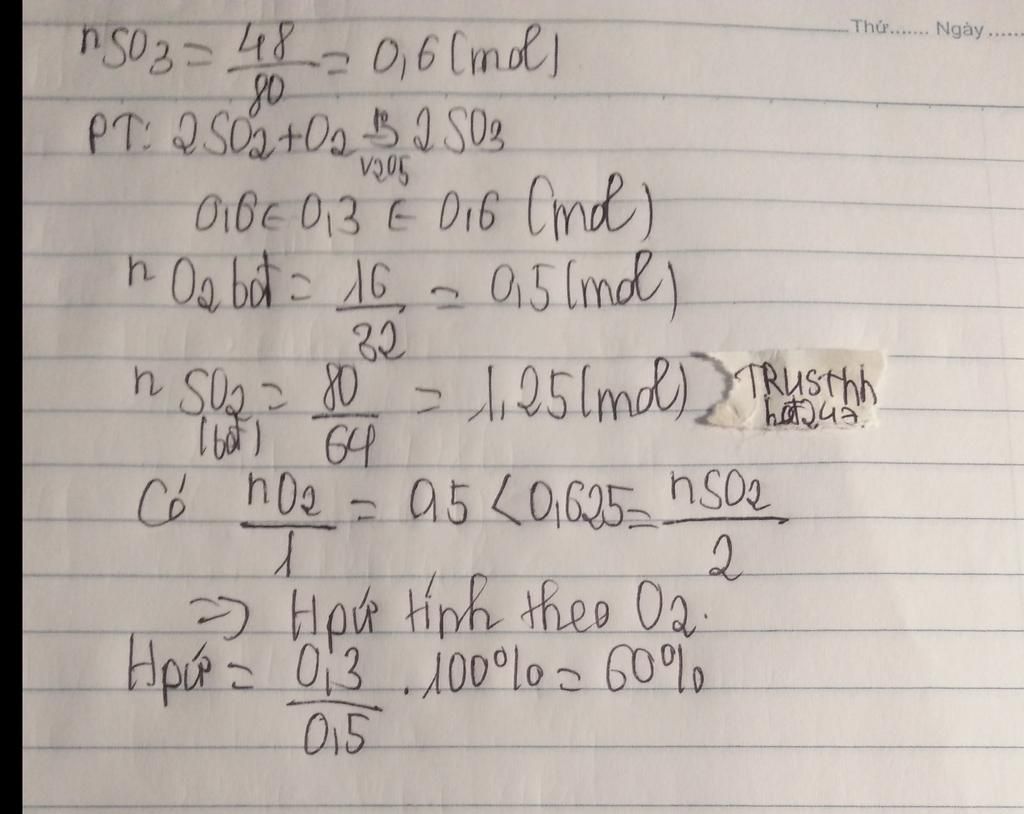 Thứ....... Ngày ......
nSO3 = 48/80 = 0,6 (mol)
PT: 2SO2 + O2 → 2SO3
V2O5
0,6 ← 0,3 ← 0,6 (mol)
nO2 bđ = 16/32 = 0,5 (mol)
nSO2 (bđ) = 80/64 = 1,25 (mol)
TRUSThh
hot247
Có nO2/1 = 0,5 < 0,625 = nSO2/2
=> Hpứ tính theo O2.
Hpứ = 0,3/0,5 . 100% = 60%